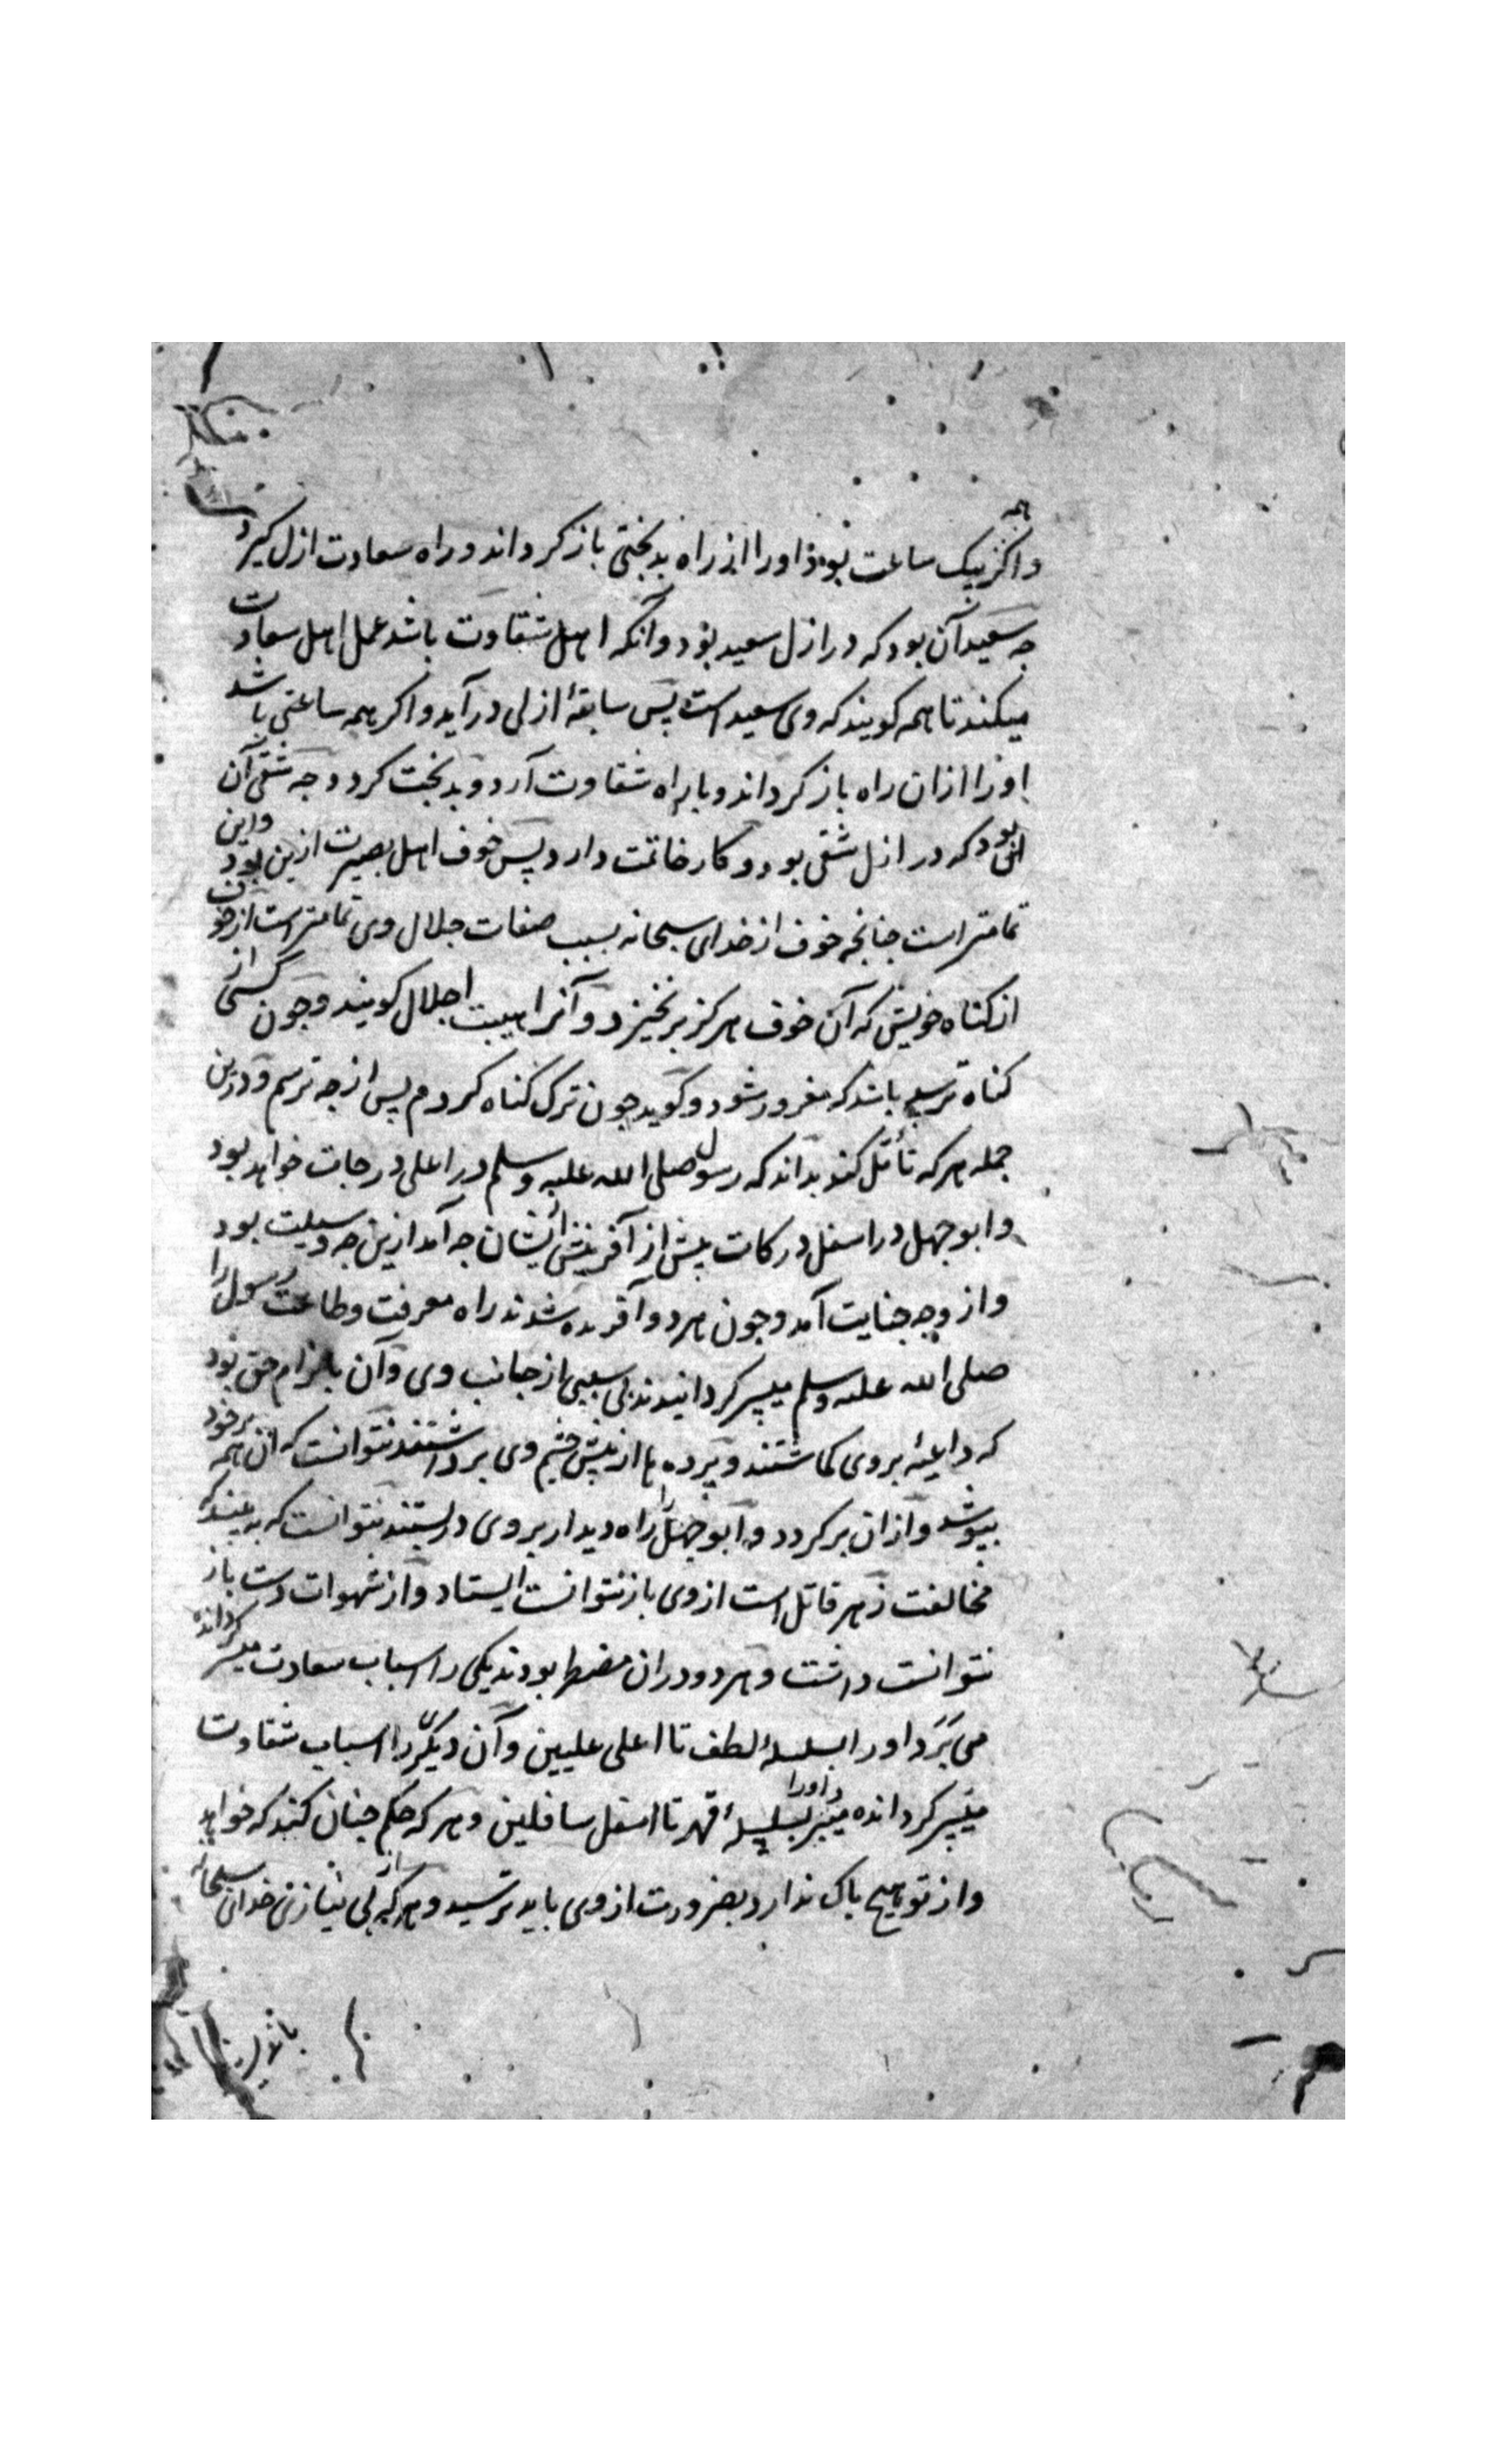 واگر همه یک ساعت بود او را از راه بدبختی باز گرداند و راه سعادت ازل گیرد
چه سعید آن بود که در ازل سعید بود و آنکه اهل شقاوت باشد عمل اهل سعادت
میکند تا همه کویند که وی سعید است پس سابقهٔ ازلی در آید و اکر همه ساعتی باشد
او را ازان راه باز کرداند و با راه شقاوت آرد و بدبخت کردد چه شقی آن
بود که در ازل شقی بود و کار خاتمت دارد پس خوف اهل بصیرت ازین بود واین
تمامتر است جنانجه خوف از خدای سبحانه بسبب صفات جلال وی تمامتر است از خوف
از کناه خویش که آن خوف هرکز برنخیزد و آنرا هیبت اجلال کویند و جون کسی از
کناه ترسد باشد که مغرور شود و کوید جون ترک کناه کردم پس از جه ترسم و درین
جمله هر که تأمّل کند بداند که رسول صلی الله علیه وسلم در اعلی درجات خواهد بود
و ابوجهل در اسفل درکات پیش از آفرینش ایشان جه آمد ازین جه وسیلت بود
و از وجه جنایت آمد و جون هر دو آفریده شدند راه معرفت و طاعت رسول را
صلی الله علیه وسلم میسر کردانیدند بی سببی از جانب وی و آن بالزام حق بود
که داعیه بر وی کماشتند و پرده ها از پیش چشم وی برداشتند نتوانست که آن همه بر خود
بپوشد و ازان بر کردد و ابوجهل را راه دیدار بر وی در بستند نتوانست که به بیند که
مخالفت زهر قاتل است از وی باز نتوانست ایستاد و از شهوات دست باز
نتوانست داشت و هر دو دران مضطر بودند یکی را اسباب سعادت میسر کردانده
می برد او را بسلسلهٔ لطف تا اعلی علیین و آن دیکری را اسباب شقاوت
میسر کردانده میبرد او را بسلسلهٔ قهر تا اسفل سافلین و هر که حکم جنان کند که خواهد
و از تو هیچ باک ندارد بضرورت از وی باید ترسید و هر که از بی نیازی خدای سبحانه